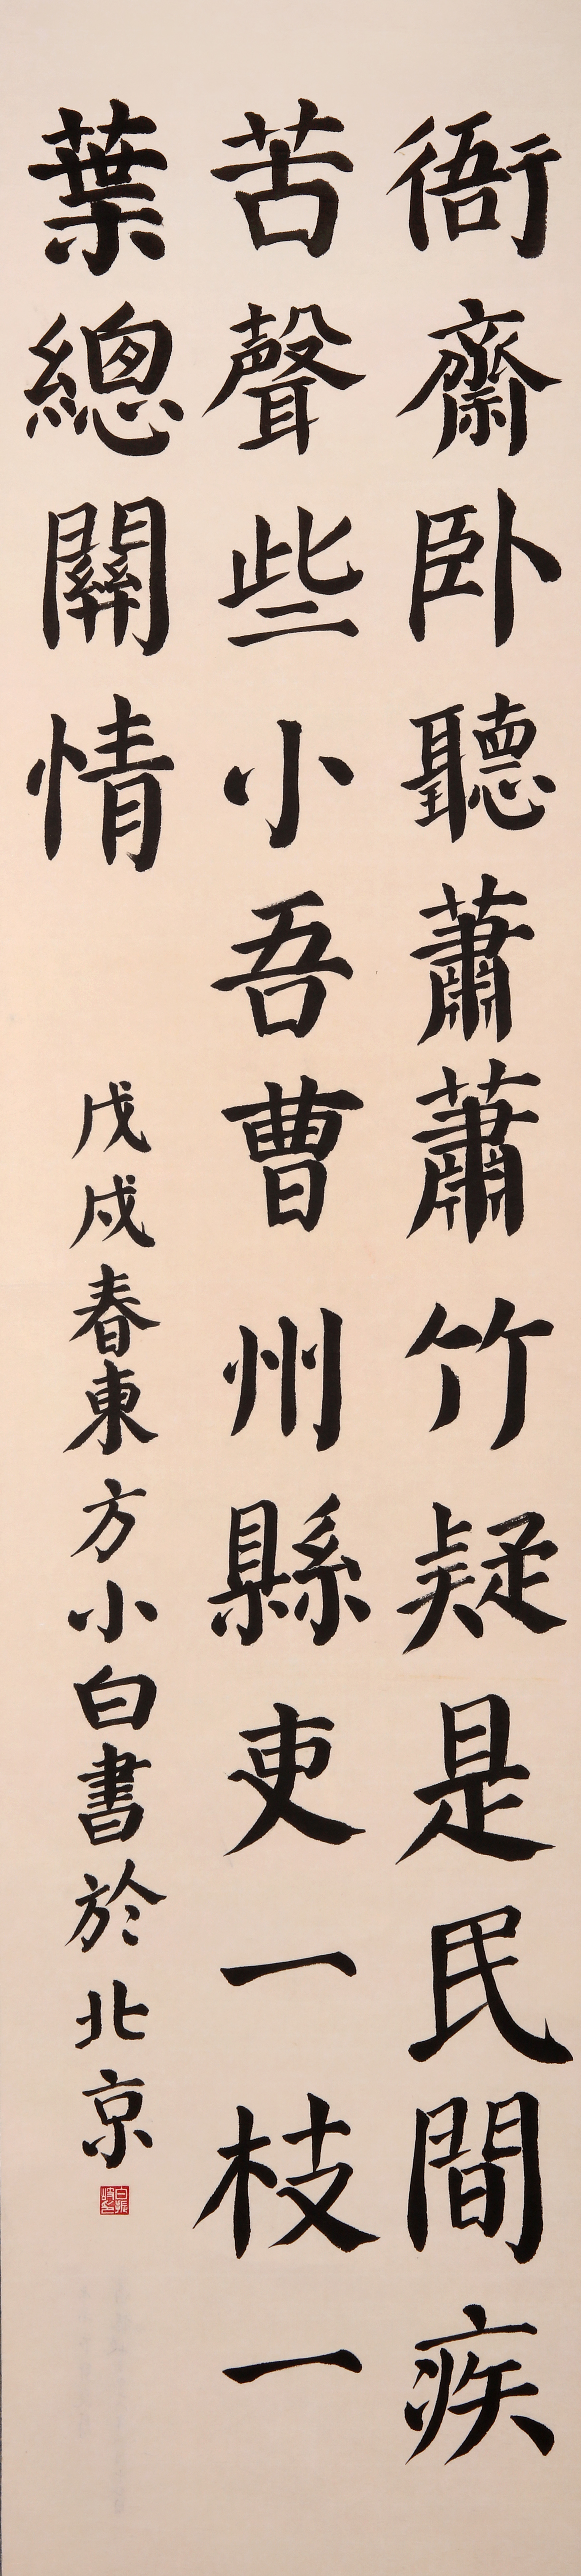 衙齋卧聽蕭蕭竹疑是民間疾
苦聲些小吾曹州縣吏一枝一
葉總關情
戊戌春東方小白書於北京